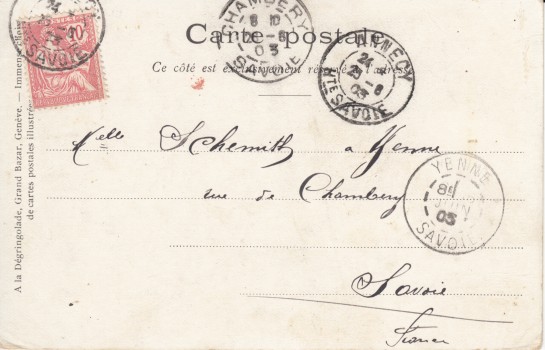 Carte postale
Ce côté est exclusivement réservé à l'adresse
CHAMBERY
8 10
03
SAVOIE
ANNECY
24
-8
03
HTE SAVOIE
SAVOIE
Melle Schemitt a Yenne
rue de Chambery
Savoie
France
YENNE
8E
JUIN
03
SAVOIE
A la Dégringolade, Grand Bazar, Genève. — Immense choix
de cartes postales illustrées